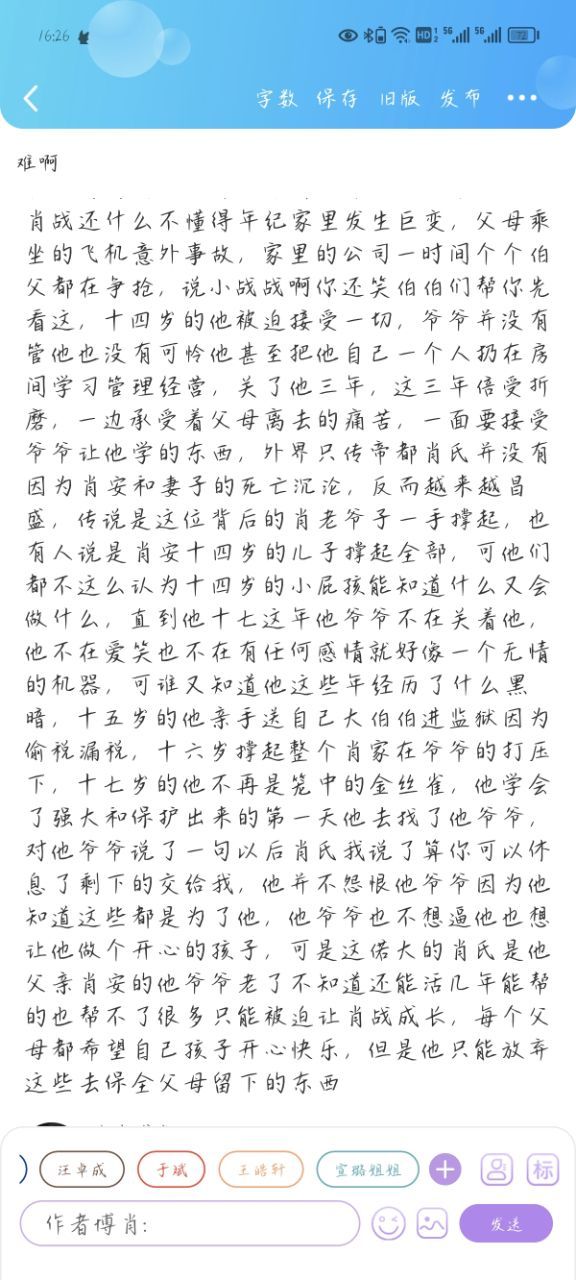 16:26
HD 1 2 5G 5G 72
字数 保存 旧版 发布
难啊
肖战还什么不懂得年纪家里发生巨变，父母乘
坐的飞机意外事故，家里的公司一时间个个伯
父都在争抢，说小战战啊你还笑伯伯们帮你先
看这，十四岁的他被迫接受一切，爷爷并没有
管他也没有可怜他甚至把他自己一个人扔在房
间学习管理经营，关了他三年，这三年倍受折
磨，一边承受着父母离去的痛苦，一面要接受
爷爷让他学的东西，外界只传帝都肖氏并没有
因为肖安和妻子的死亡沉沦，反而越来越昌
盛，传说是这位背后的肖老爷子一手撑起，也
有人说是肖安十四岁的儿子撑起全部，可他们
都不这么认为十四岁的小屁孩能知道什么又会
做什么，直到他十七这年他爷爷不在关着他，
他不在爱笑也不在有任何感情就好像一个无情
的机器，可谁又知道他这些年经历了什么黑
暗，十五岁的他亲手送自己大伯伯进监狱因为
偷税漏税，十六岁撑起整个肖家在爷爷的打压
下，十七岁的他不再是笼中的金丝雀，他学会
了强大和保护出来的第一天他去找了他爷爷，
对他爷爷说了一句以后肖氏我说了算你可以休
息了剩下的交给我，他并不怨恨他爷爷因为他
知道这些都是为了他，他爷爷也不想逼他也想
让他做个开心的孩子，可是这偌大的肖氏是他
父亲肖安的他爷爷老了不知道还能活几年能帮
的也帮不了很多只能被迫让肖战成长，每个父
母都希望自己孩子开心快乐，但是他只能放弃
这些去保全父母留下的东西
汪卓成 于斌 王皓轩 宣璐姐姐 标
作者博肖: 发送